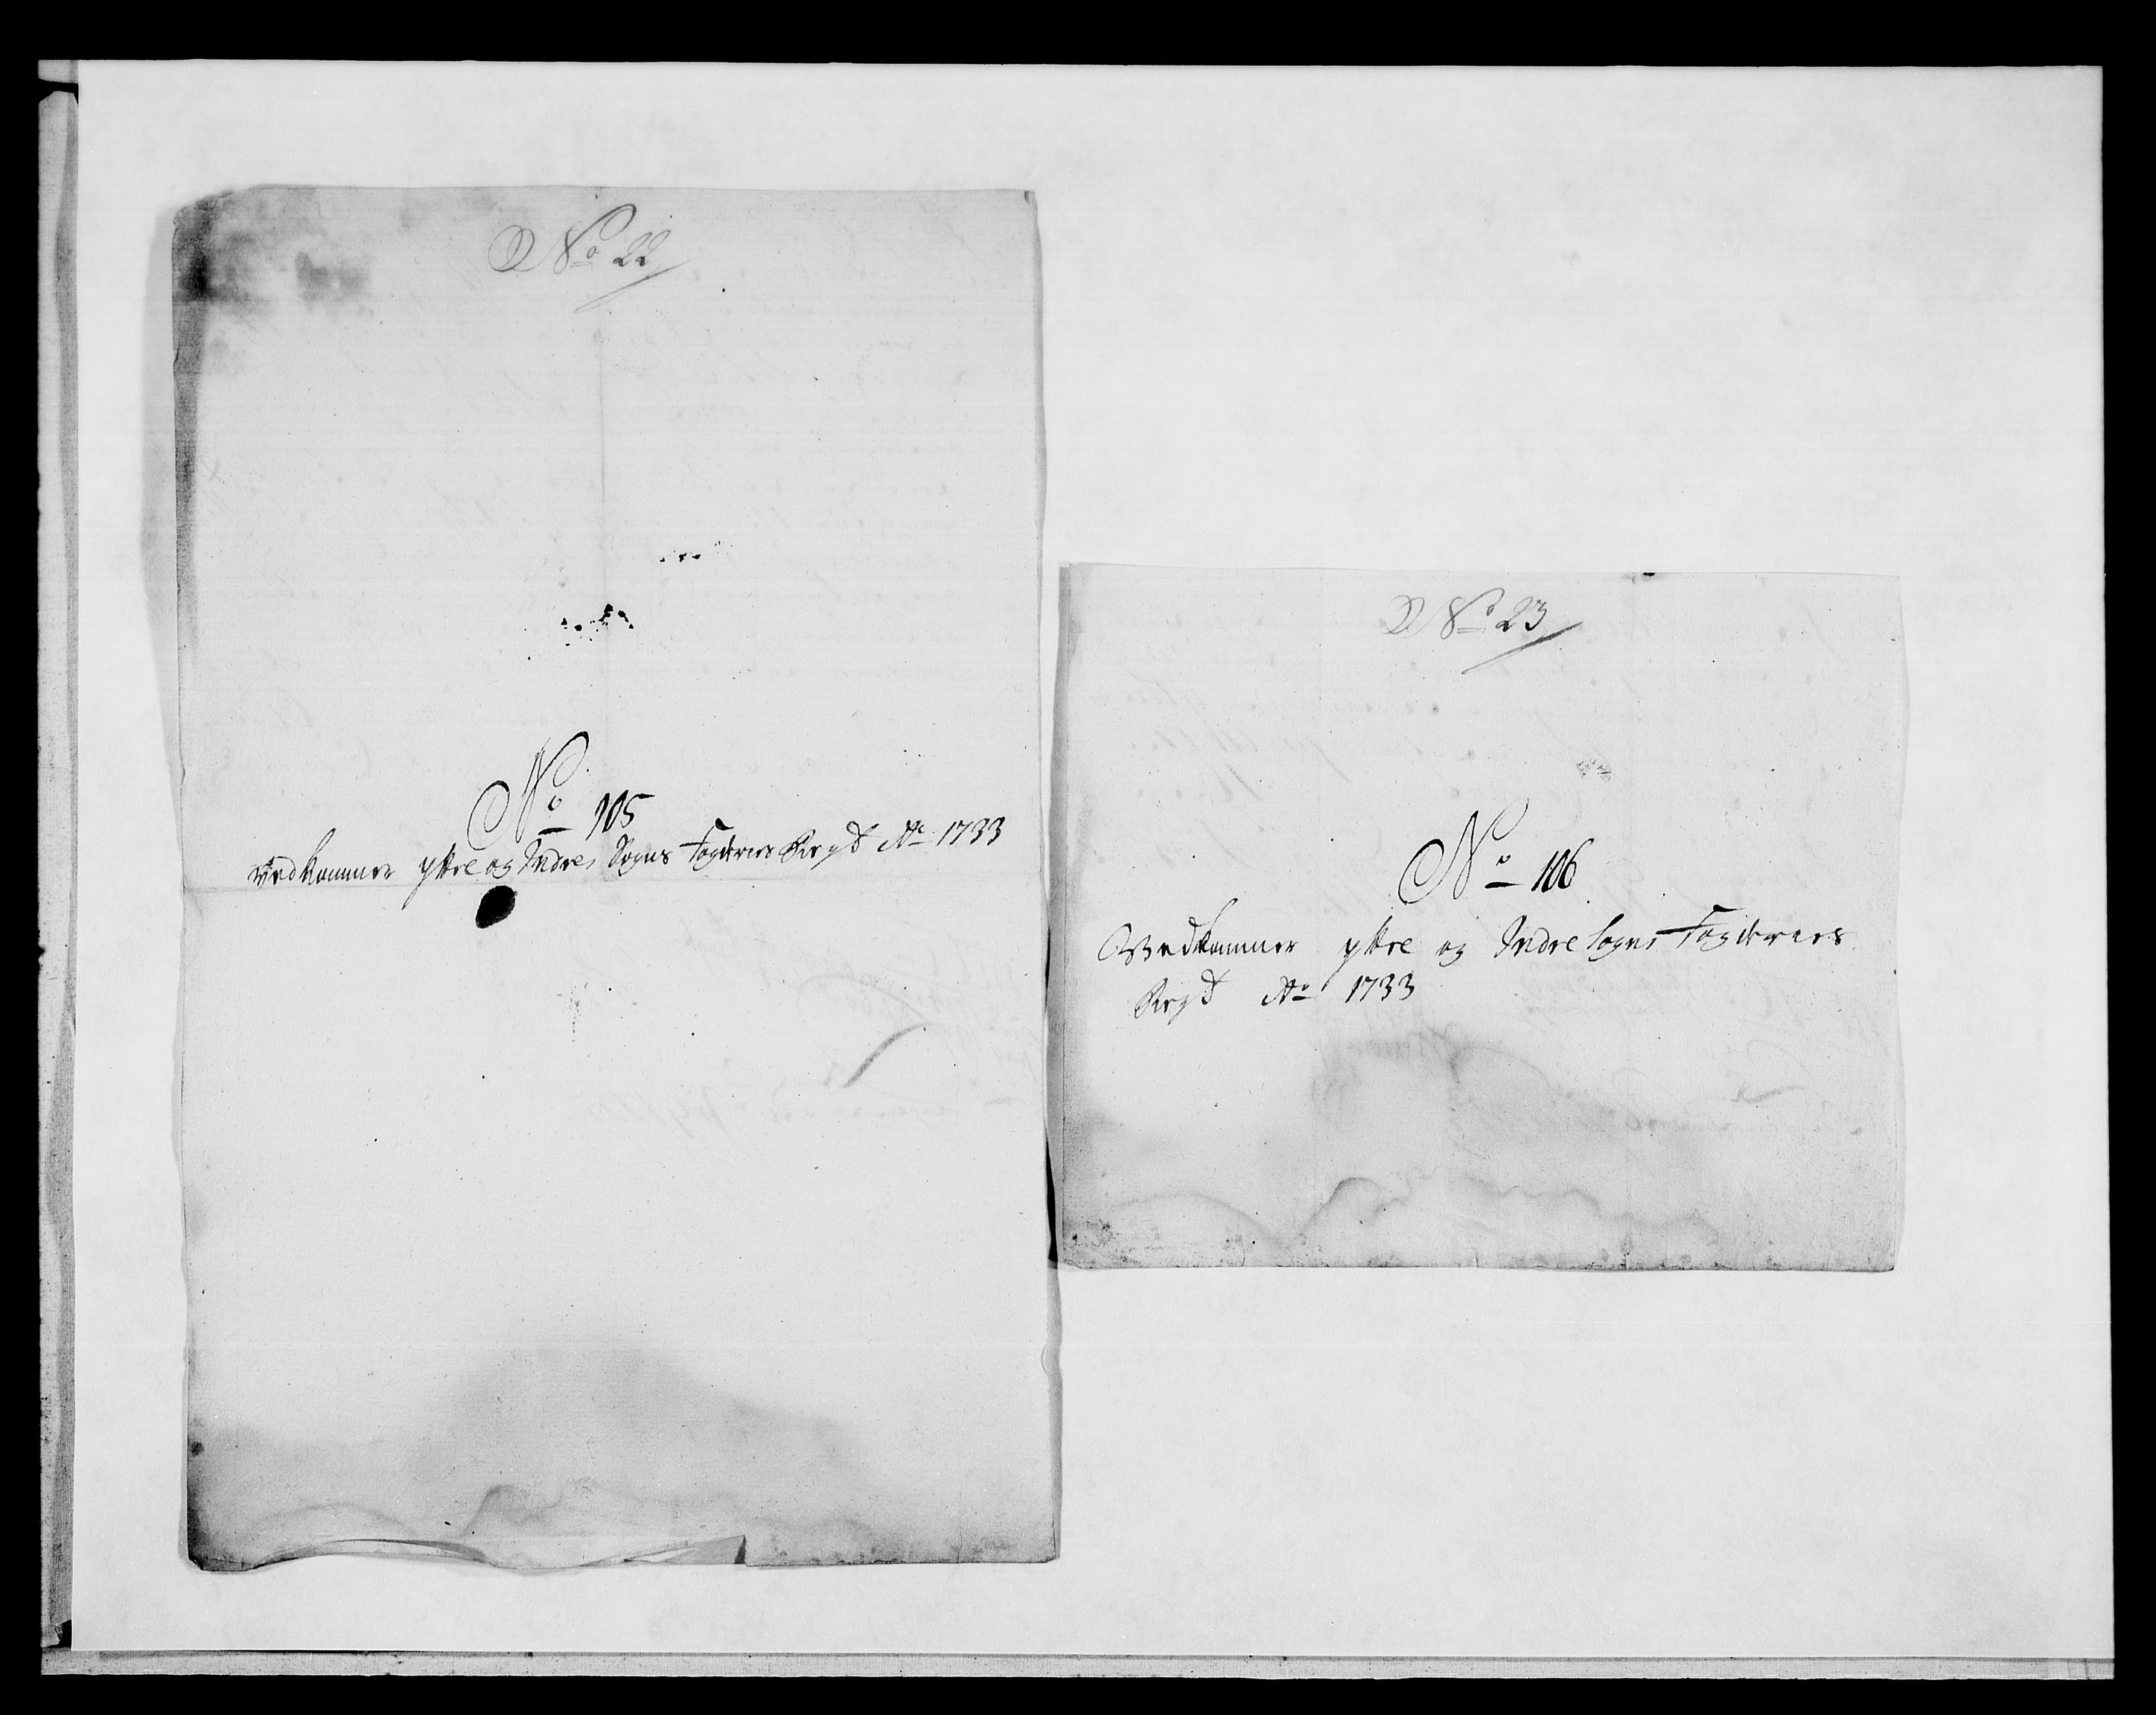 No 22
No 105
vedkommer yttre og Indre Sogns Fogderies Regs Ao 1733
No 23
No 106
Vedkommer yttre og Indre Sogns Fogderies
Regs Ao 1733